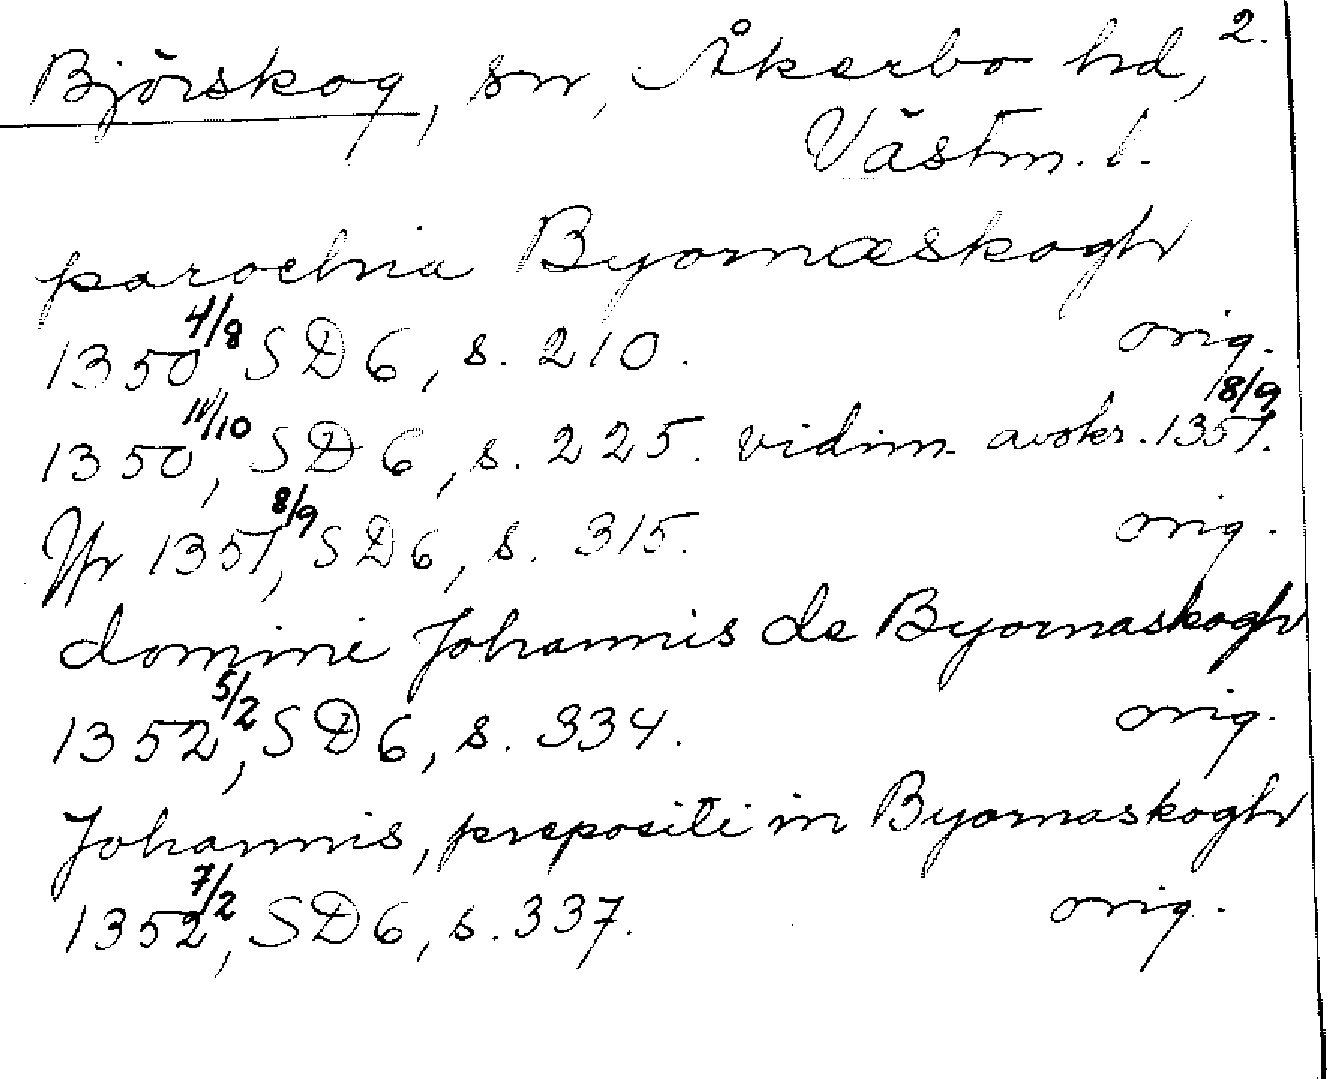 Björskog, sn, Åkerbo hd, 2.
Västm. l.
parochia Byornæskogh
1350 4/8, SD 6, s. 210. orig.
1350 11/10, SD 6, s. 225. vidim. avskr. 1351 18/9.
Yfr 1351 8/9, SD 6, s. 315. orig.
domini Johannis de Byornaskogh
1352 5/2, SD 6, s. 334. orig.
Johannis, prepositi in Byornaskogh
1352 7/2, SD 6, s. 337. orig.